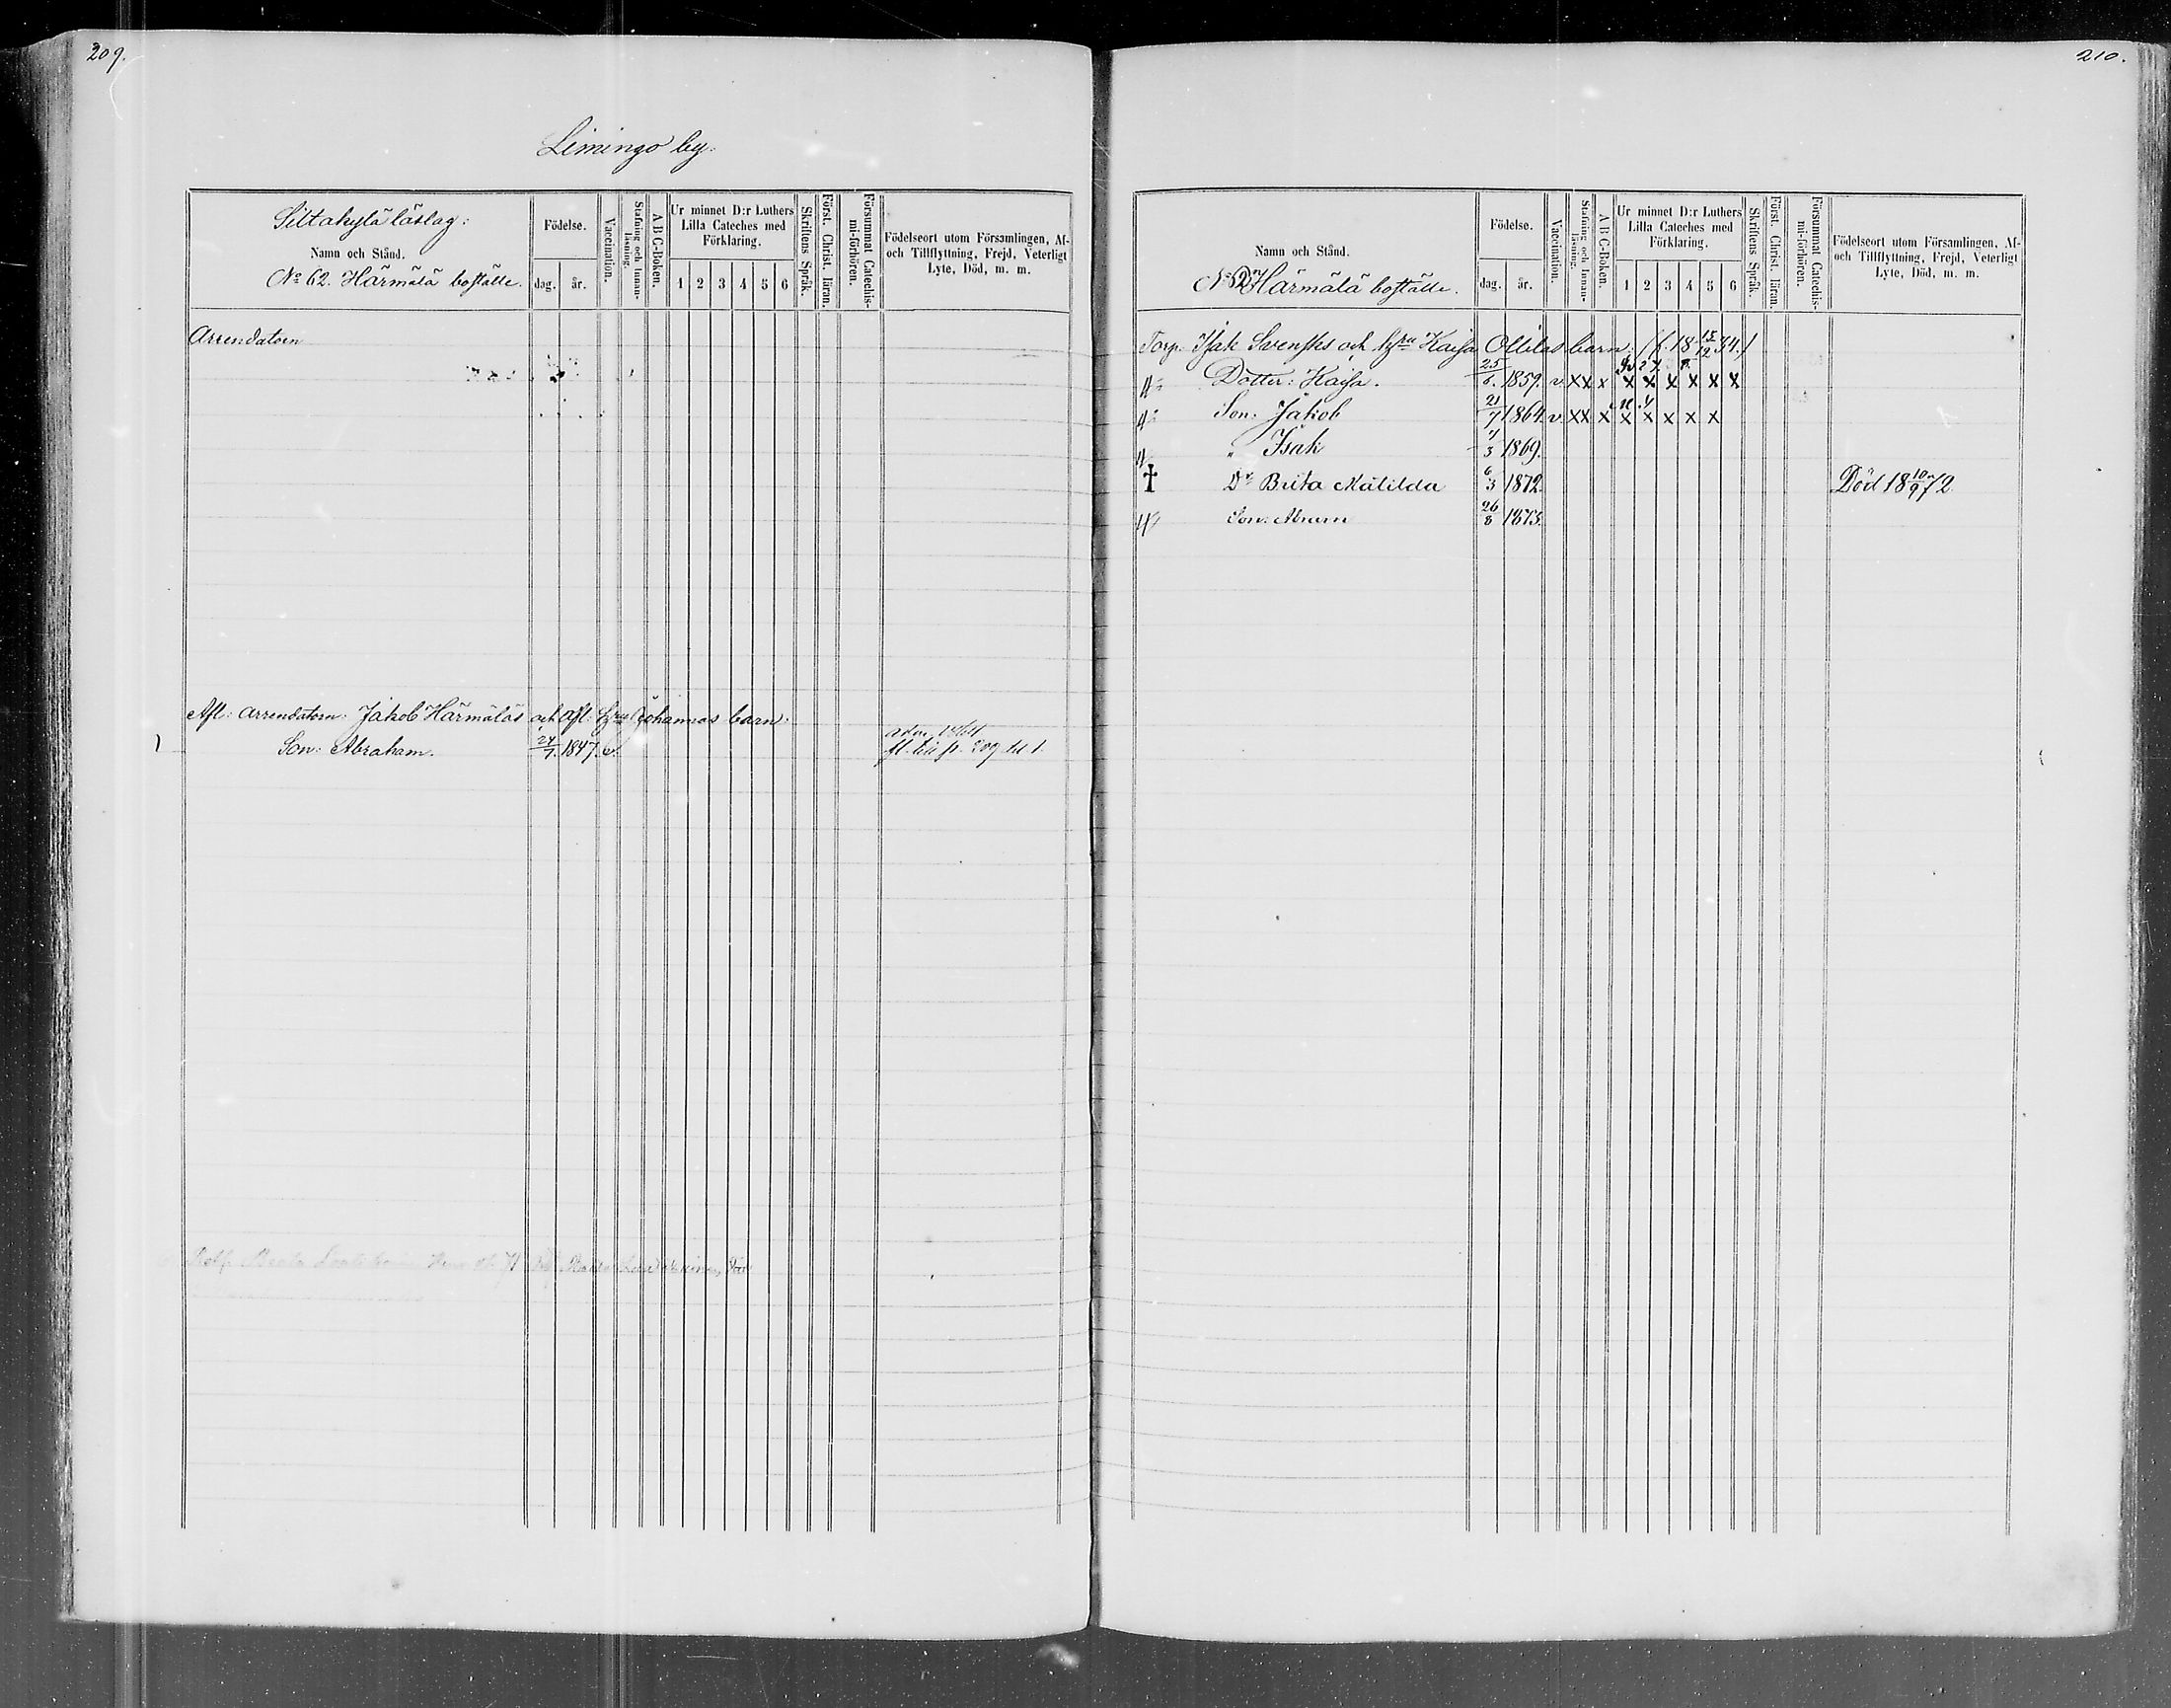 209.
Limingo by.
Siltakylä läslag:
Namn och Stånd.
No 62. Härmälä boställe.
Födelse.
dag. år.
Vaccination.
Stafning och Innan-läsning.
A B C-Boken.
Ur minnet D:r Luthers
Lilla Cateches med
Förklaring.
1 2 3 4 5 6
Skriftens Språk.
Först. Christ. läran.
Försummat Catechis-mi-förhören.
Födelseort utom Församlingen, Af-
och Tillflyttning, Frejd, Veterligt
Lyte, Död, m. m.
Arrendatorn
Afl: Arrendatorn: Jakob Härmäläs och afl: hustru Johannas barn:
Son: Abraham. 24/7. 1847. v. fl. till p. 209
210.
Namn och Stånd.
No 62 Härmälä boställe.
Födelse.
dag. år.
Vaccination.
Stafning och Innan-läsning.
A B C-Boken.
Ur minnet D:r Luthers
Lilla Cateches med
Förklaring.
1 2 3 4 5 6
Skriftens Språk.
Först. Christ. läran.
Försummat Catechis-mi-förhören.
Födelseort utom Församlingen, Af-
och Tillflyttning, Frejd, Veterligt
Lyte, Död, m. m.
Torp. Isak Svensks och hustru Kaisa Ollilas barn: (f. 18 15/12 34.)
Dotter: Kaisa. 25/6. 1859. v. x x x x x x x x x
Son: Jakob 21/7 1864. v. x x x x x x x x
" Isak 4/3 1869.
Dr Brita Matilda 6/3 1872. Död 18 10/9 72.
Son: Abram 26/8 1873.